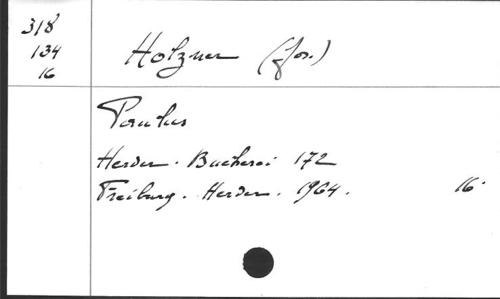 318
134
16
Holzner (Jos.)
Paulus
Herder. Bucherei 172
Freiburg. Herder. 1964. 16°